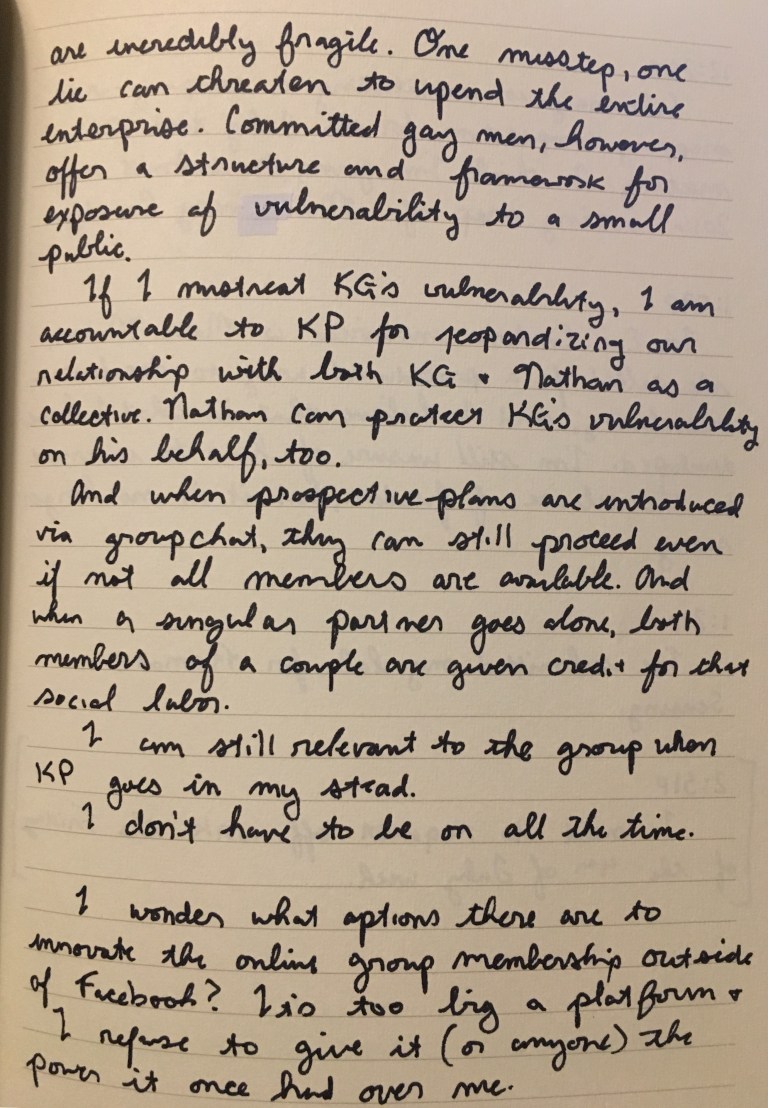 are incredibly fragile. One misstep, one
lie can threaten to upend the entire
enterprise. Committed gay men, however,
offer a structure and framework for
exposure of vulnerability to a small
public.
If I mistreat KG's vulnerability, I am
accountable to KP for jeopardizing our
relationship with both KG + Nathan as a
collective. Nathan can protect KG's vulnerability
on his behalf, too.
And when prospective plans are introduced
via groupchat, they can still proceed even
if not all members are available. And
when a singular partner goes alone, both
members of a couple are given credit for that
social labor.
I am still relevant to the group when
KP goes in my stead.
I don't have to be on all the time.
I wonder what options there are to
innovate the online group membership outside
of Facebook? I is too big a platform +
I refuse to give it (or anyone) the
power it once had over me.